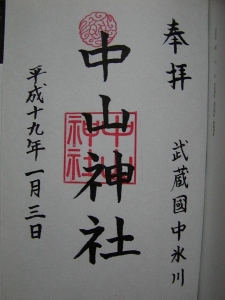 奉拝
武蔵國中氷川
中山神社
平成十九年一月三日
中山神社